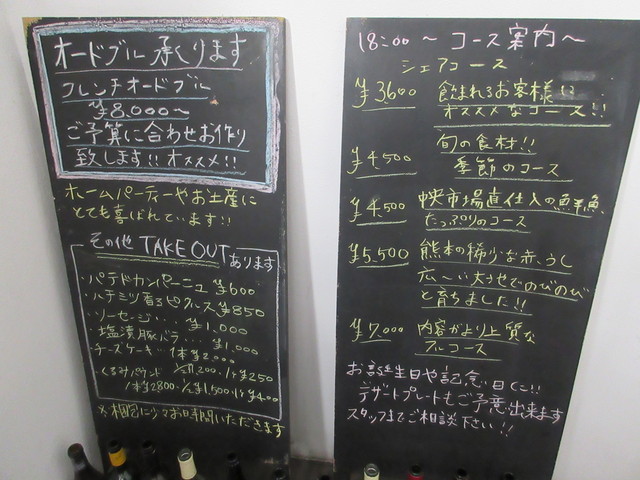 オードブル承ります
フレンチオードブル
¥8,000〜
ご予算に合わせお作り
致します!!オススメ!!
ホームパーティーやお土産に
とても喜ばれています!!
その他 TAKE OUT あります
・パテドカンパーニュ ¥600
・ハチミツ香るピクルス ¥850
・ソーセージ・・・ ¥1,000
・塩漬豚バラ・・・ ¥1,000
・チーズケーキ・・1本¥2,000
1/2 ¥1,200・1ヶ¥250
1本¥2,800・1/2 ¥1,500・1ヶ¥400
お時間いただきます
18:00〜コース案内〜
シェアコース
¥3,600 飲まれるお客様に
オススメなコース!!
¥4,500 旬の食材!!
季節のコース
¥4,500 市場直仕入の鮮魚
たっぷりのコース
¥5,500 熊本の稀少な赤うし
広〜い大地でのびのび
と育ちました!!
¥7,000 内容がより上質な
フルコース
お誕生日や記念日に!!
デザートプレートもご予意出来ます
スタッフまでご相談下さい!!